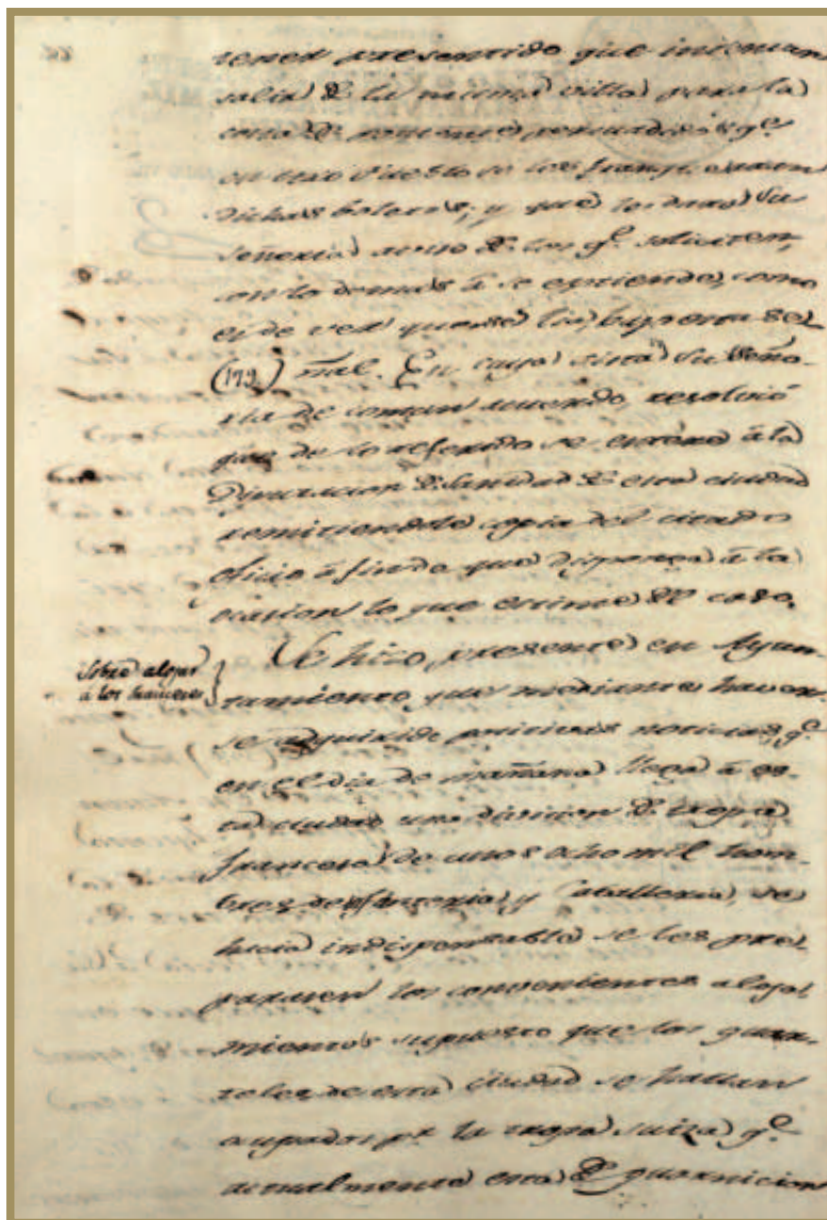 tener presentido que intentan
salir de la misma villa para la
costa de poniente persuadidos qe.
en otro Pueblo se les franquearan
dichas boletas; y que lo dará Su
Señoria aviso de los qe. soliciten,
con lo demas á se extiende, como
es de ver
(179) mal. En cuya vista Su Seño-
ria de comun acuerdo, resolvió
que de lo referido se entere á la
Diputacion de Sanidad de esta ciudad
remitiendole copia del citado
oficio á fin de que disponga á la
ocasion lo que estime del caso.
Sobre alojar
á los franceses
Se hizo presente en Ayun-
tamiento que mediante haver-
se adquirido positivas noticias, qe.
en el dia de mañana llega á es-
ta ciudad una division de tropa
francesa de unos ocho mil hom-
bres de Infanteria, y Caballeria, se
hacia indispensable se les pre-
parasen los convenientes aloja-
mientos supuesto que los quar-
teles de esta ciudad se hallan
ocupados pr. la tropa suiza qe.
actualmente esta de guarnicion